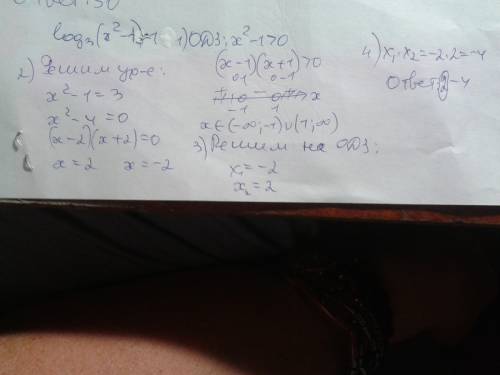 log₃(x²-1)=1 1) ОДЗ: x²-1>0
(x-1)(x+1)>0
x
-1 1
x∈(-∞;-1)∪(1;∞)
2) Решим ур-е:
x²-1=3
x²-4=0
(x-2)(x+2)=0
x=2 x=-2
3) Решим на ОДЗ:
x₁=-2
x₂=2
4) x₁·x₂=-2·2=-4
Ответ: -4